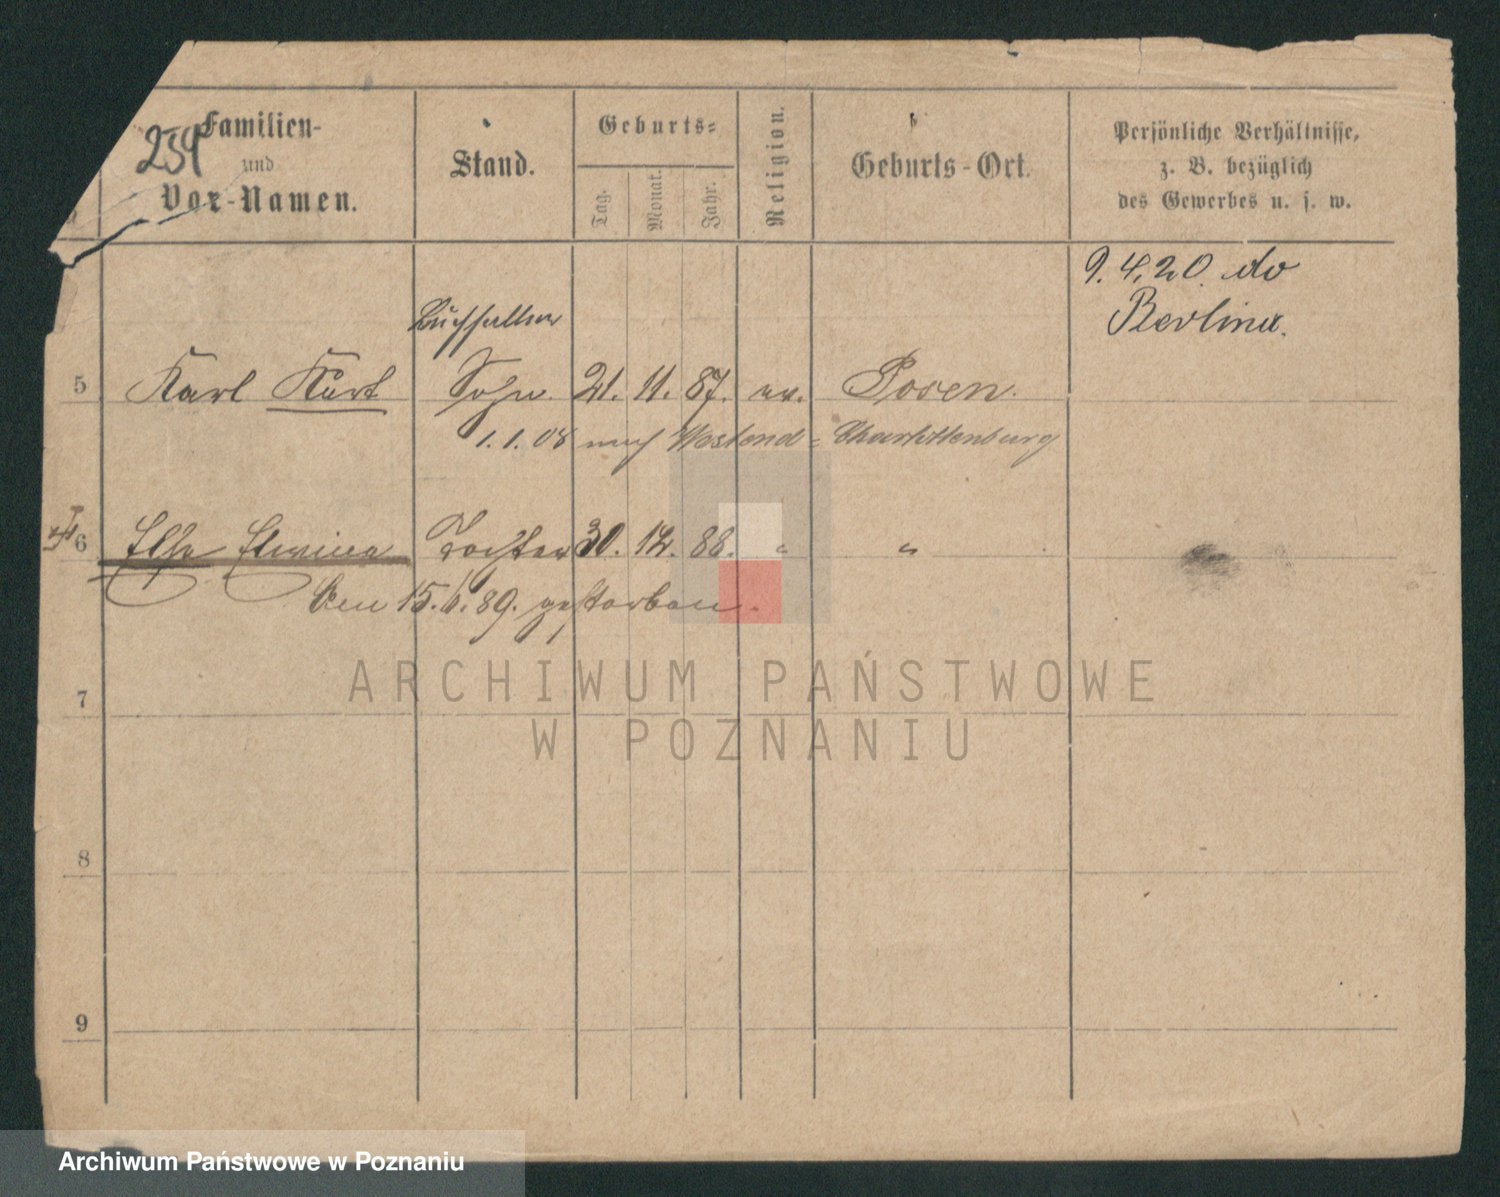 234
Familien-
und
Vor-Namen.
Stand.
Geburts-
Tag.
Monat.
Jahr.
Religion.
Geburts-Ort.
Persönliche Verhältnisse,
z. B. bezüglich
des Gewerbes u. s. w.
9.4.20. do
Berlina.
Buchhalter
5 Karl Kurt Sohn 21. 11. 87. ev. Posen.
1.1.08 nach Westend-Charlottenburg
6 Else Tochter 30. 12. 88. " "
Den 15. 89. gestorben.
7
8
9
ARCHIWUM PAŃSTWOWE
W POZNANIU
Archiwum Państwowe w Poznaniu